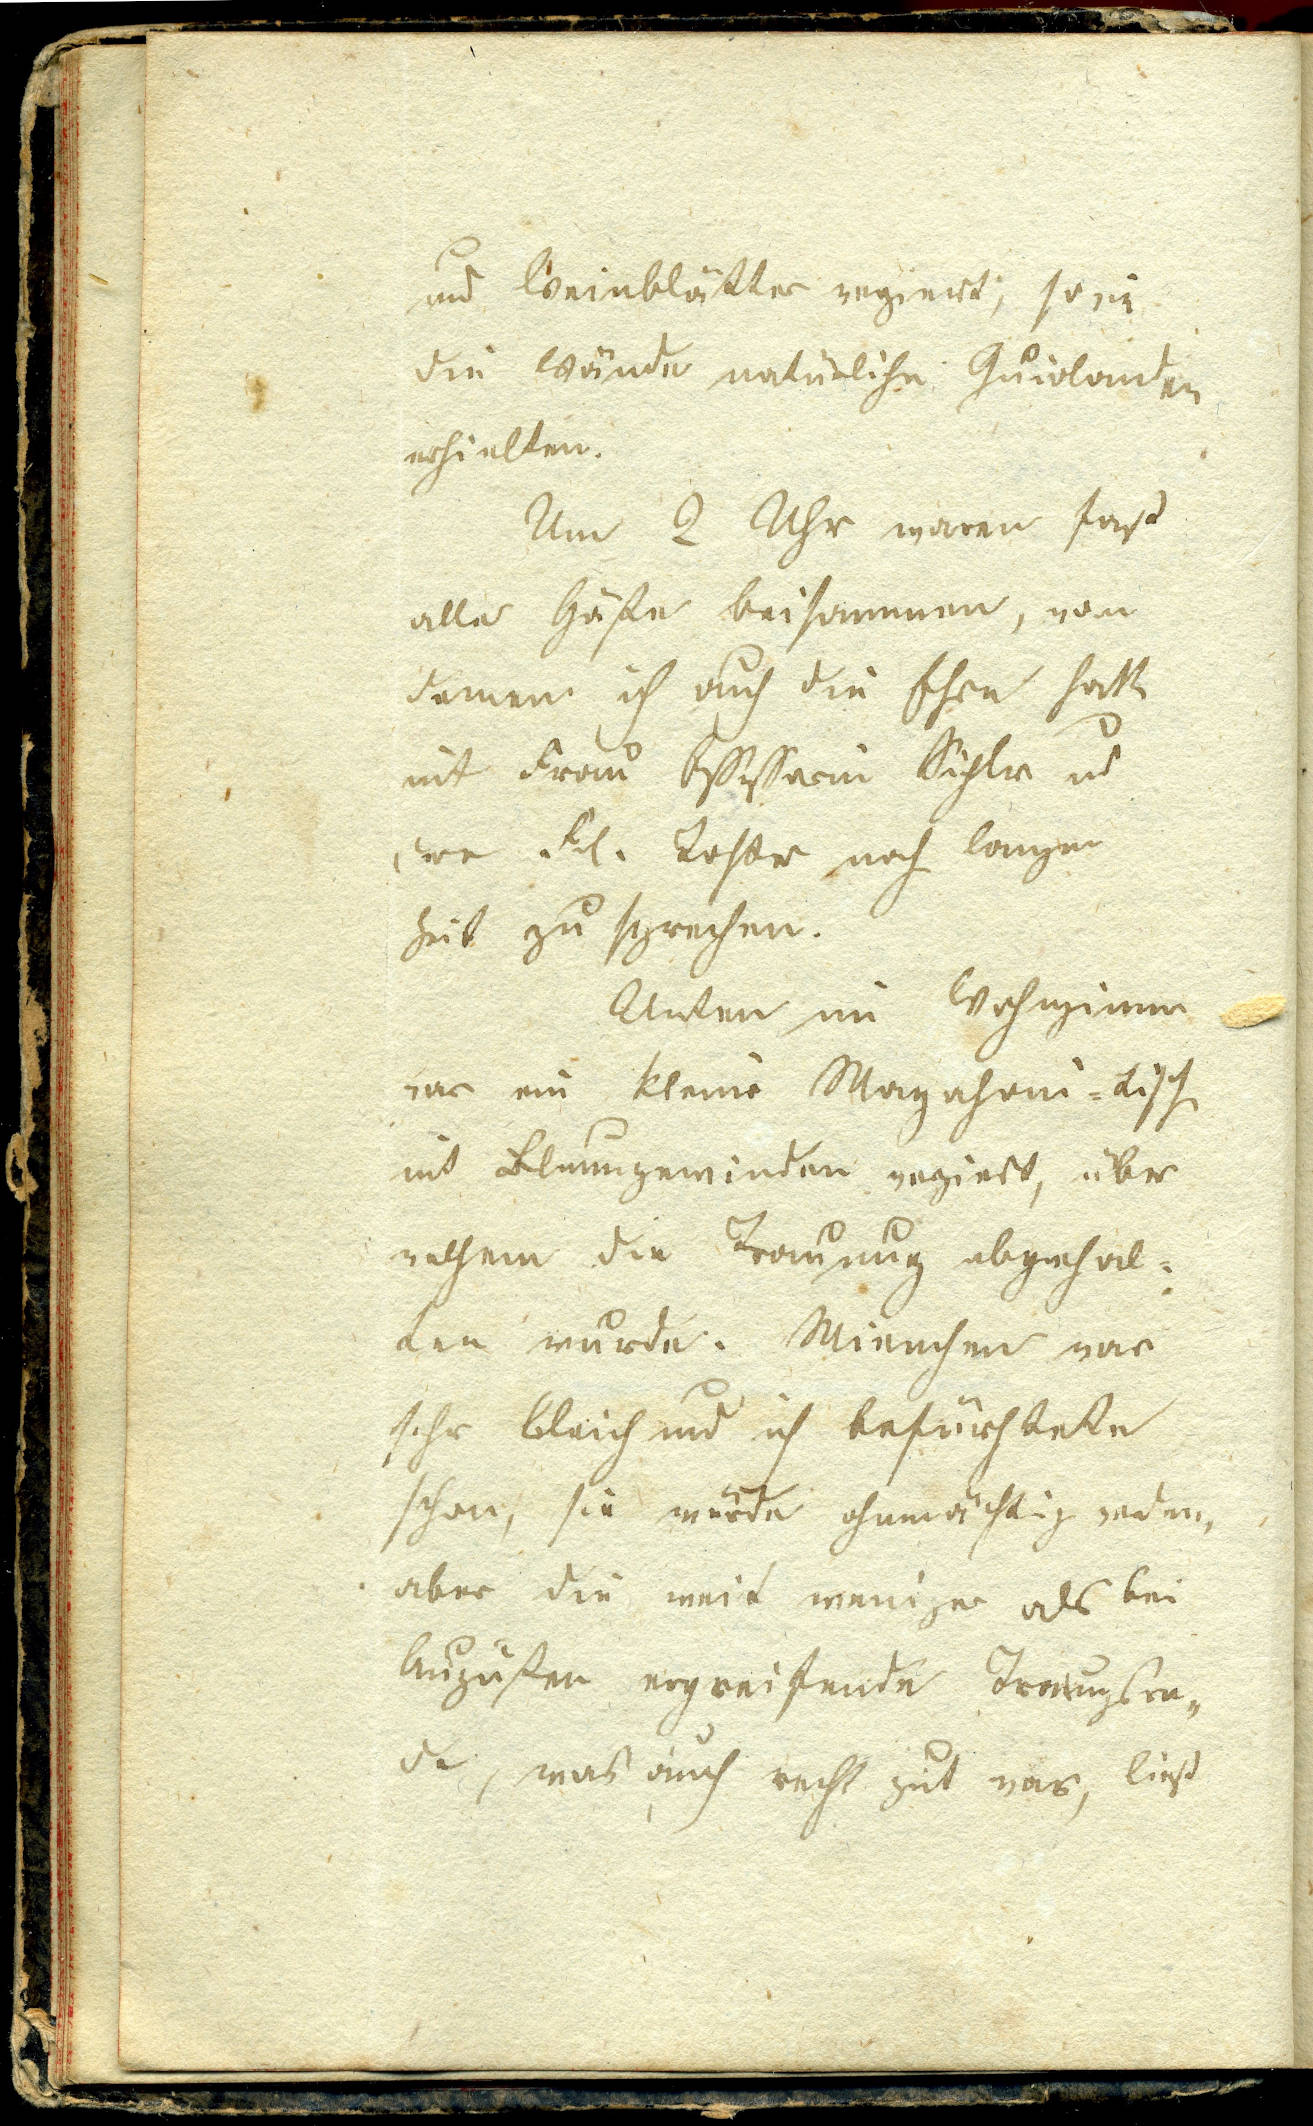 und Weinblätter verziert, so wie
die Wände natürliche Guirlanden
erhielten.
Um 2 Uhr waren fast
alle Gäste beisammen, von
denen ich auch die Ehre hatte
mit Frau Assessorin Sichler und
ihre Frl. Tochter nach langer
Zeit zu sprechen.
Unten im Wohnzimmer
war ein kleiner Magahoni-Tisch
mit Blumengewinden verziert, über
welchem die Trauung abgehal-
ten wurde. Mienchen war
sehr bleich und ich befürchtete
schon, sie würde ohnmächtig werden,
aber die weit weniger als bei
Augusten ergreifende Trauungsre-
de, was auch recht gut war, ließ